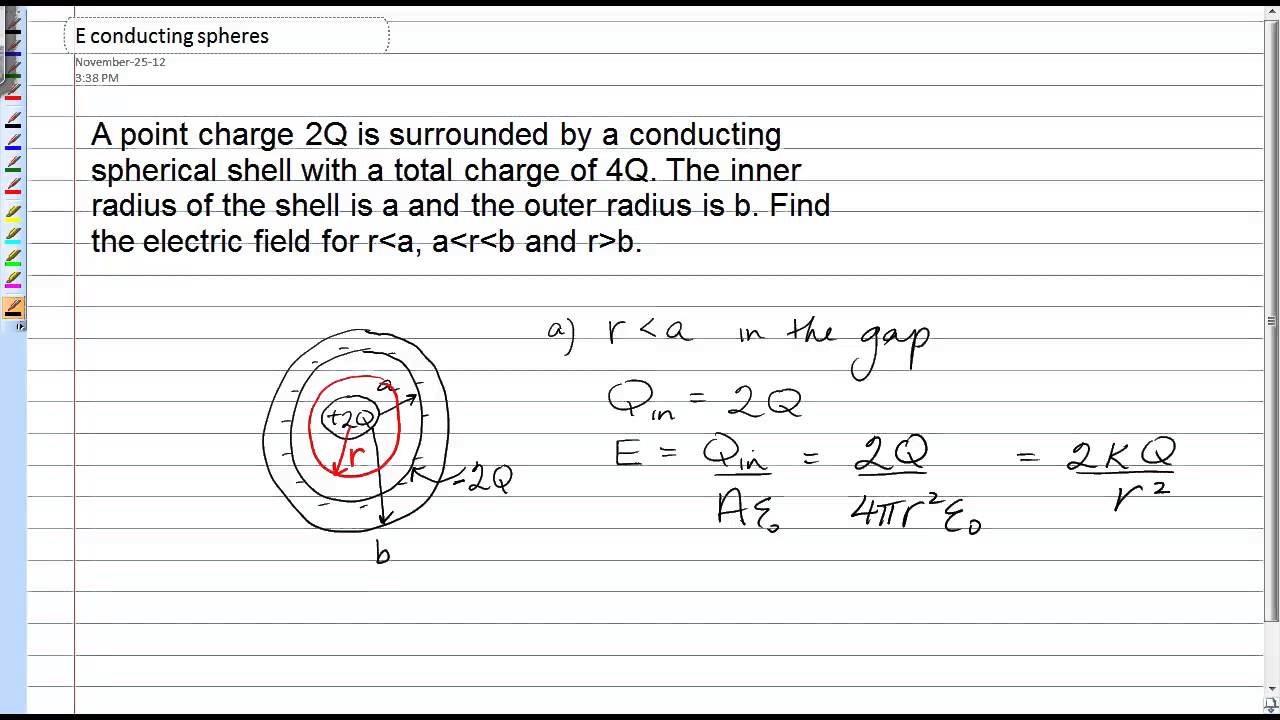 E conducting spheres
November-25-12
3:38 PM
A point charge 2Q is surrounded by a conducting
spherical shell with a total charge of 4Q. The inner
radius of the shell is a and the outer radius is b. Find
the electric field for r<a, a<r<b and r>b.
a) r < a in the gap
Q_in = 2Q
E = Q_in / Aε₀ = 2Q / 4πr²ε₀ = 2KQ / r²
a
+2Q
r
-2Q
b